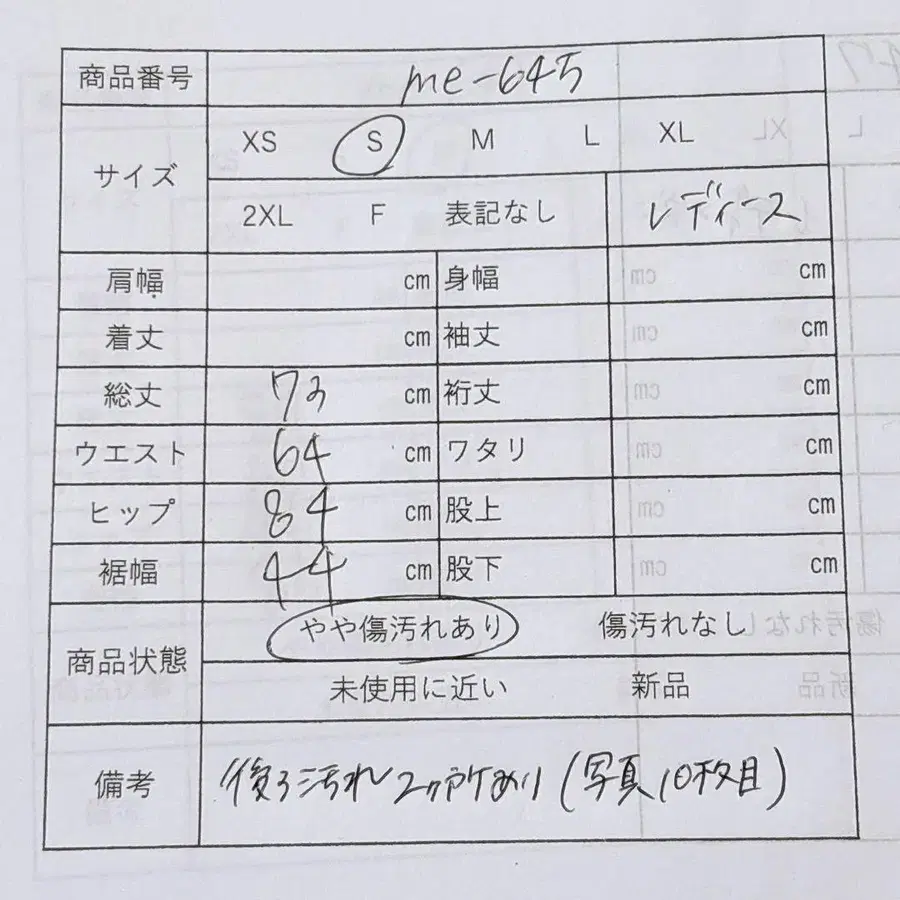 商品番号 me-645
サイズ XS S M L XL
2XL F 表記なし レディース
肩幅 cm 身幅 cm
着丈 cm 袖丈 cm
総丈 cm 裄丈 cm
ウエスト 64 cm ワタリ cm
ヒップ 84 cm 股上 cm
裾幅 44 cm 股下 cm
商品状態 やや傷汚れあり 傷汚れなし
未使用に近い 新品
備考 後ろ汚れ2ヶ所あり(写真10枚目)